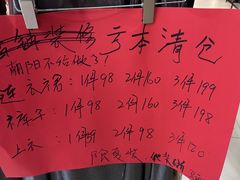 亏本清仓
朝阳不给做了!
连衣裙: 1件98 2件160 3件199
裤子: 1件98 2件160 3件198
上衣: 1件 2件98 3件120
限夏装